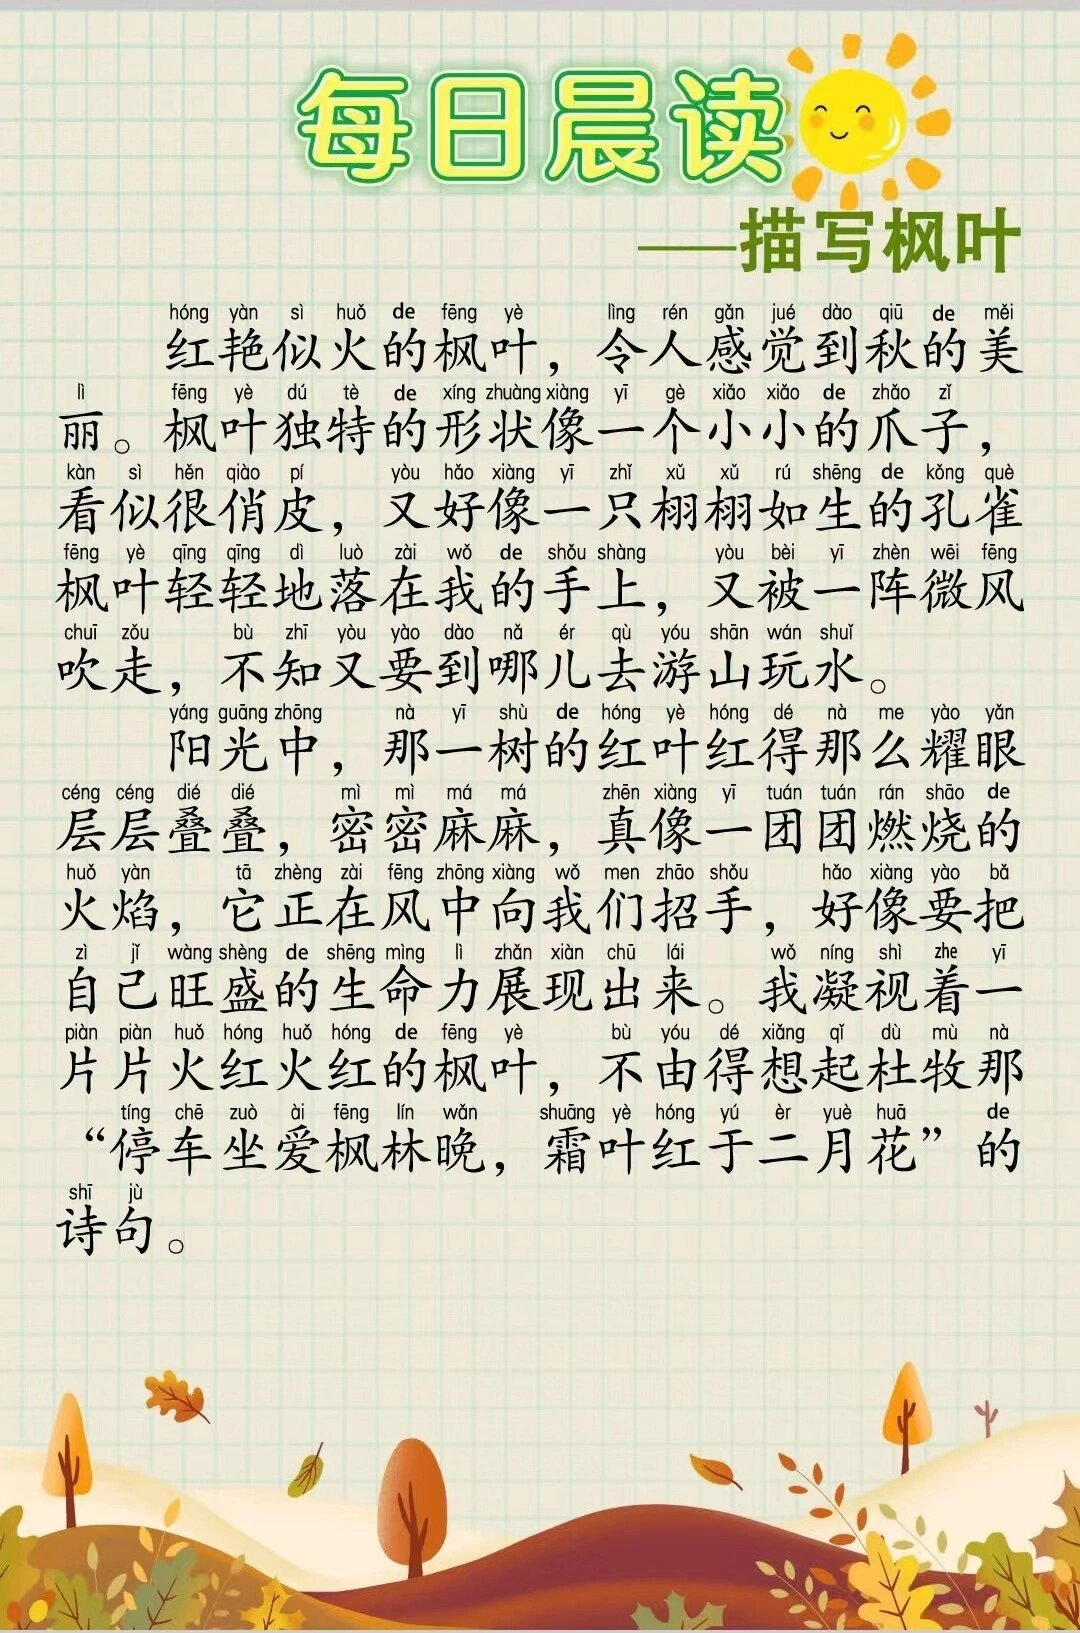 每日晨读
——描写枫叶
hóng yàn sì huǒ de fēng yè lìng rén gǎn jué dào qiū de měi
红艳似火的枫叶，令人感觉到秋的美
lì fēng yè dú tè de xíng zhuàng xiàng yī gè xiǎo xiǎo de zhǎo zǐ
丽。枫叶独特的形状像一个小小的爪子，
kàn sì hěn qiào pí yòu hǎo xiàng yī zhǐ xǔ xǔ rú shēng de kǒng què
看似很俏皮，又好像一只栩栩如生的孔雀
fēng yè qīng qīng dì luò zài wǒ de shǒu shàng yòu bèi yī zhèn wēi fēng
枫叶轻轻地落在我的手上，又被一阵微风
chuī zǒu bù zhī yòu yào dào nǎ ér qù yóu shān wán shuǐ
吹走，不知又要到哪儿去游山玩水。
yáng guāng zhōng nà yī shù de hóng yè hóng dé nà me yào yǎn
阳光中，那一树的红叶红得那么耀眼
céng céng dié dié mì mì má má zhēn xiàng yī tuán tuán rán shāo de
层层叠叠，密密麻麻，真像一团团燃烧的
huǒ yàn tā zhèng zài fēng zhōng xiàng wǒ men zhāo shǒu hǎo xiàng yào bǎ
火焰，它正在风中向我们招手，好像要把
zì jǐ wàng shèng de shēng mìng lì zhǎn xiàn chū lái wǒ níng shì zhe yī
自己旺盛的生命力展现出来。我凝视着一
piàn piàn huǒ hóng huǒ hóng de fēng yè bù yóu dé xiǎng qǐ dù mù nà
片片火红火红的枫叶，不由得想起杜牧那
tíng chē zuò ài fēng lín wǎn shuāng yè hóng yú èr yuè huā de
“停车坐爱枫林晚，霜叶红于二月花”的
shī jù
诗句。